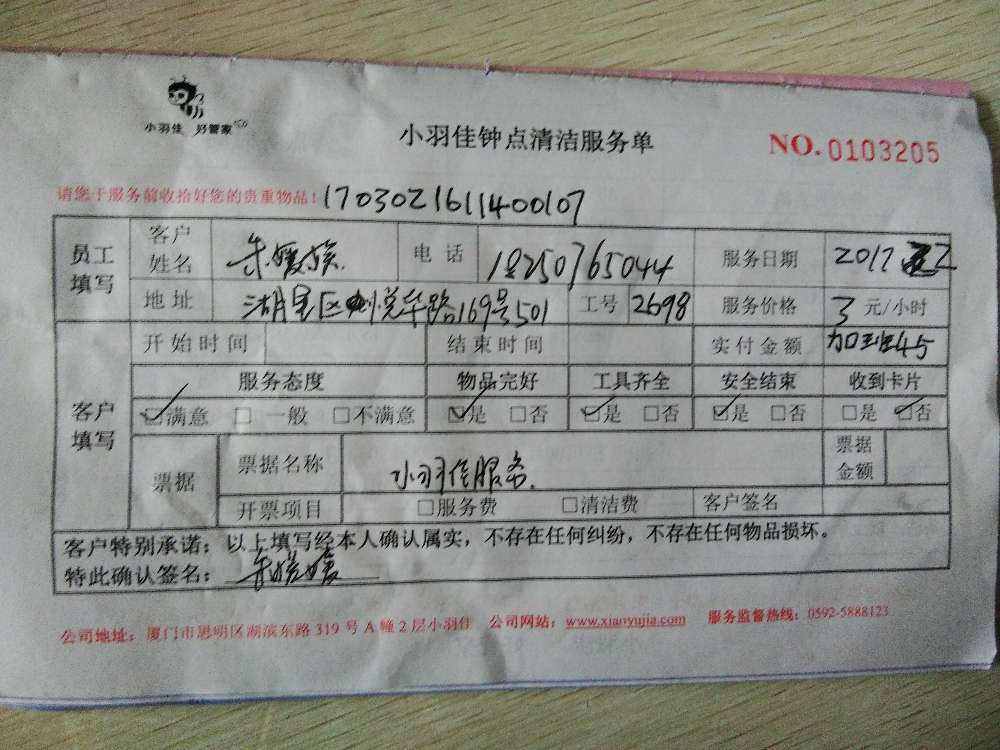 小羽佳 好管家
小羽佳钟点清洁服务单
NO.0103205
请您于服务前收拾好您的贵重物品!
1703021611400107
员工填写 客户姓名 电话 18250765044 服务日期 2017
地址 湖里区 悦华路169号501 工号 2698 服务价格 3 元/小时
客户填写 开始时间 结束时间 实付金额 加班45
服务态度 物品完好 工具齐全 安全结束 收到卡片
☑满意 □一般 □不满意 ☑是 □否 ☑是 □否 ☑是 □否 □是 ☑否
票据 票据名称 小羽佳服务. 票据金额
开票项目 □服务费 □清洁费 客户签名
客户特别承诺:以上填写经本人确认属实,不存在任何纠纷,不存在任何物品损坏。
特此确认签名:
公司地址:厦门市思明区湖滨东路319号A幢2层小羽佳 公司网站:www.xianyujia.com 服务监督热线:0592-5888123